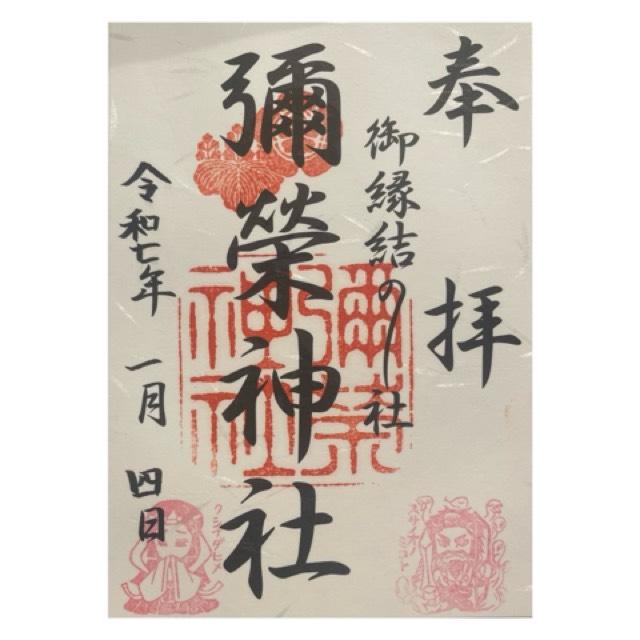 奉拝
御縁結の社
彌榮神社
令和七年 一月 四日
彌榮
神社
スサノオノミコト
クシナダヒメ